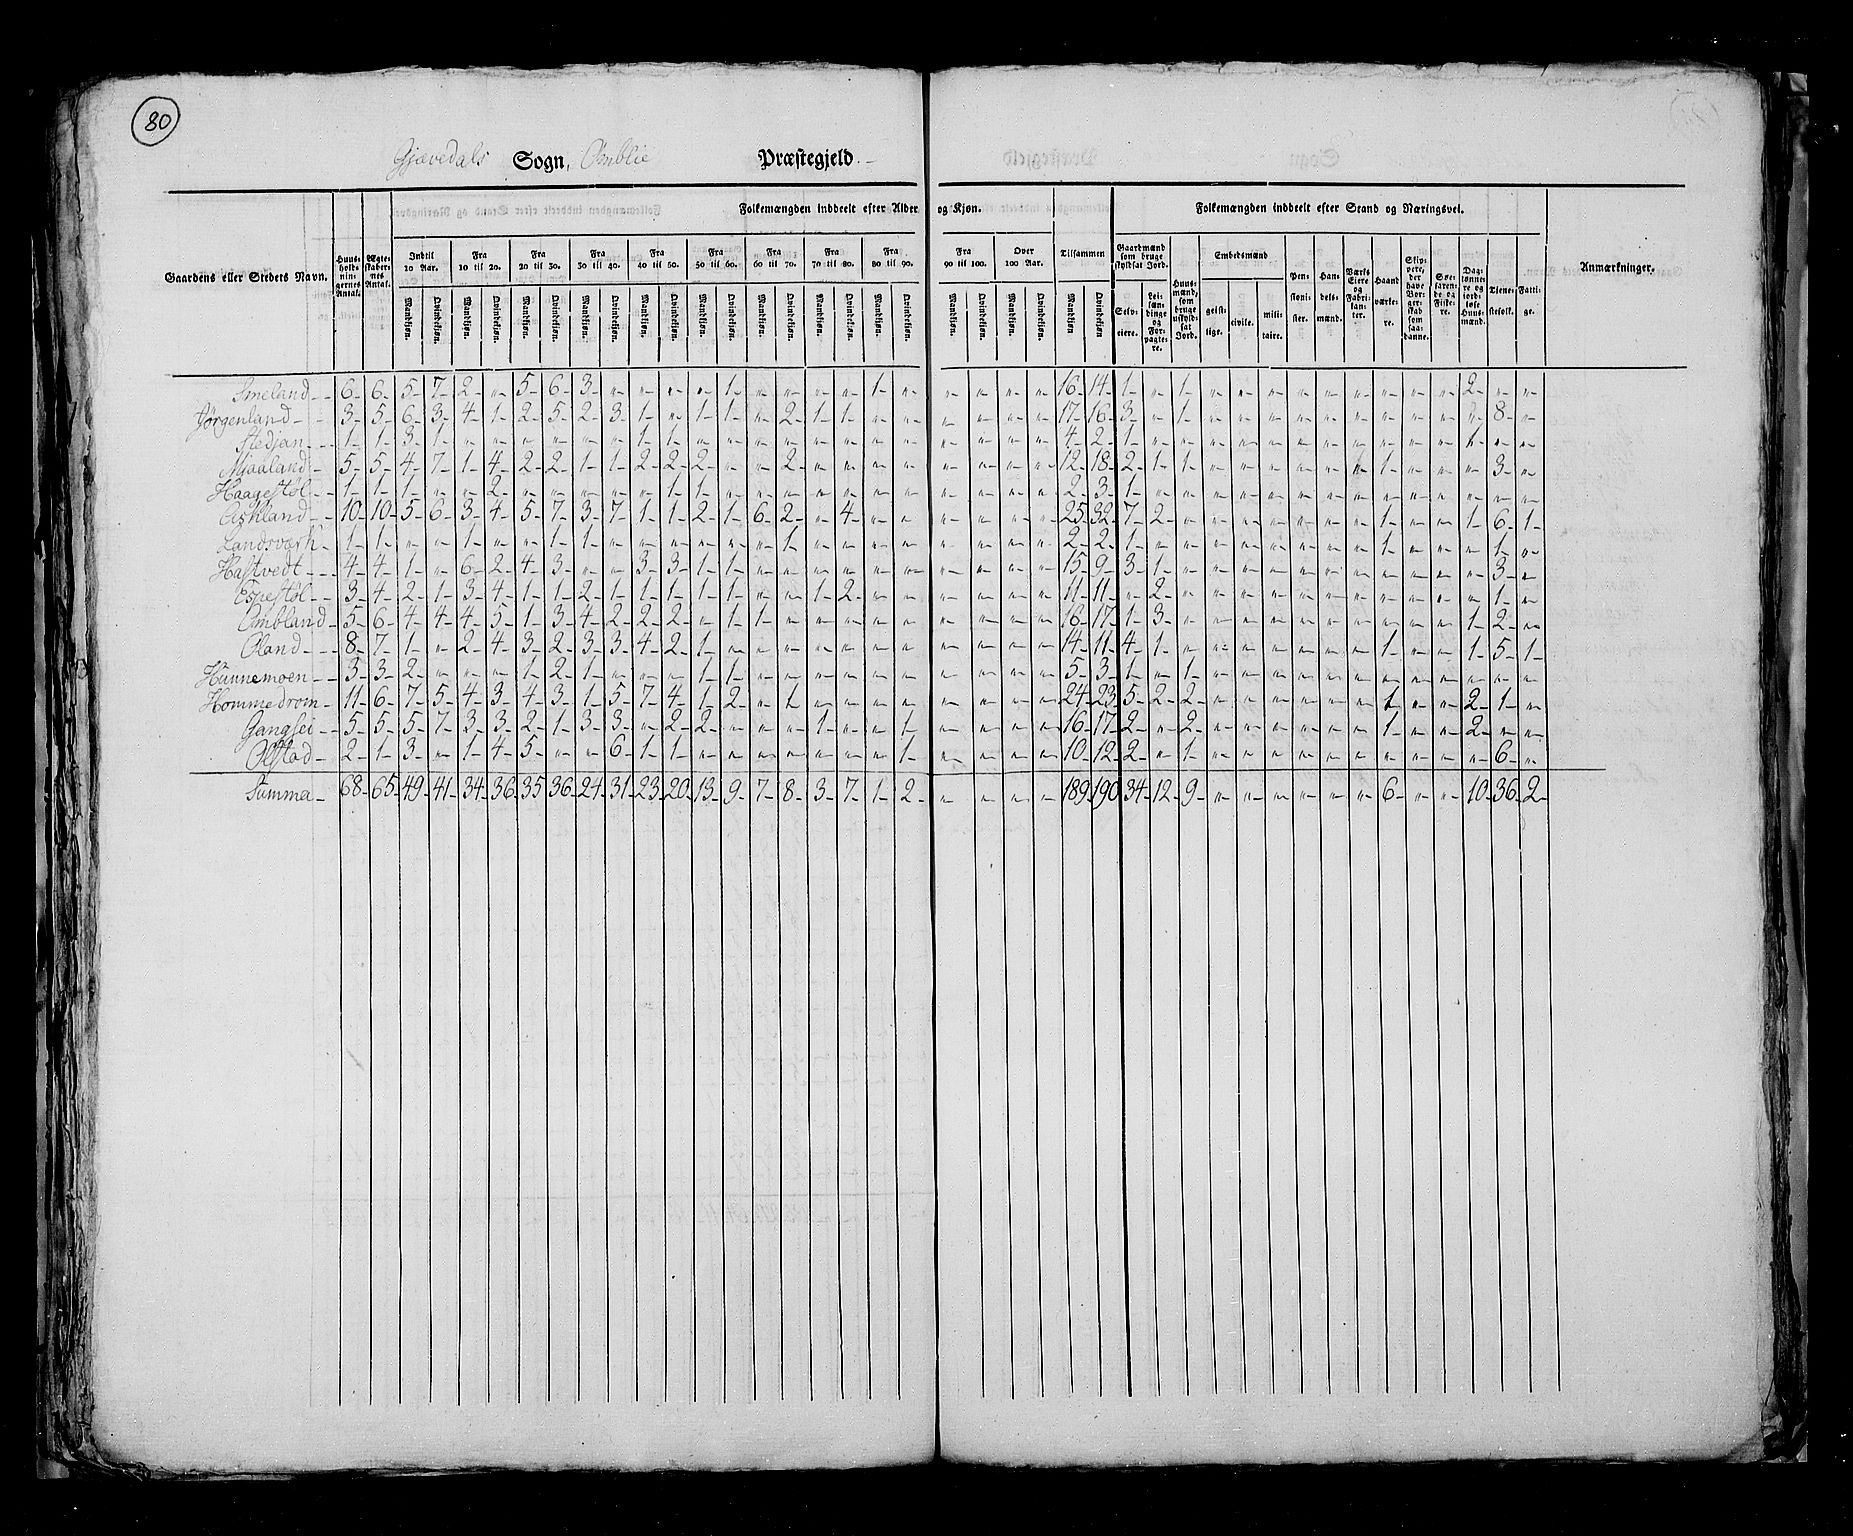 80
Gjævedals Sogn, Omblie Præstegjeld.
Folkemængden inddeelt efter Alder og Kjøn. Folkemængden inddeelt efter Stand og Næringsvei.
Gaardens eller Stedets Navn. Huusholdningernes Antal. Ægteskabernes Antal. Indtil 10 Aar. Fra 10 til 20. Fra 20 til 30. Fra 30 til 40. Fra 40 til 50. Fra 50 til 60. Fra 60 til 70. Fra 70 til 80. Fra 80 til 90. Fra 90 til 100. Over 100 Aar. Tilsammen
Mandkjøn. Qvindekjøn. Mandkjøn. Qvindekjøn. Mandkjøn. Qvindekjøn. Mandkjøn. Qvindekjøn. Mandkjøn. Qvindekjøn. Mandkjøn. Qvindekjøn. Mandkjøn. Qvindekjøn. Mandkjøn. Qvindekjøn. Mandkjøn. Qvindekjøn. Mandkjøn. Qvindekjøn. Mandkjøn. Qvindekjøn. Mandkjøn Qvindekjøn.
Gaardmænd som bruge skyldsat Jord. Selveiere. Leilændinge og Forpagtere. Huusmænd, som bruge uskyldsat Jord. Embedsmænd geistlige. civile. militaire. Pensionister. Handelsmænd. Værks Eiere og Fabrikanter. Haandværkere. Skippere, der have Borgerskab som saadanne. Søefarende og Fiskere. Daglønnere og jordløse Huusmænd. Tienestefolk. Fattige. Anmærkninger.
Smeland 6 6 5 7 2 " 5 6 3 " " " " 1 " " " " 1 " " " " " 16 14 1 " 1 " " " " " " " " " 2 " "
Jørgenland 3 5 6 3 4 1 2 5 2 3 1 " 1 1 " 2 1 1 " " " " " " 17 16 3 " 1 " " " " " " " " " 8 "
Stedjan 1 1 3 1 " " " " " " 1 1 " " " " " " " " " " " " 4 2 1 " " " " " " " " " " " 1 " "
Mjaaland 5 5 4 7 1 4 2 2 1 1 2 2 2 " " 2 " " " " " " " " 12 18 2 1 1 " " " " " " 1 " " " 3 "
Haagestøl 1 1 1 " " 2 " " " " " 1 1 " " " " " " " " " " " 2 3 1 " " " " " " " " " " " " " "
Askland 10 10 5 6 3 4 5 7 3 7 1 1 2 1 6 2 " 4 " " " " " " 25 32 7 2 " " " " " " " 1 " " 1 6 1
Landsværk 1 1 " " 1 " " 1 1 " " " " " " 1 " " " " " " " " 2 2 1 " " " " " " " " 1 " " " 1 "
Hastvedt 4 4 1 " 6 2 4 3 " " 3 3 1 1 " " " " " " " " " " 15 9 3 1 " " " " " " " " " " " 3 "
Espestøl 3 4 2 1 3 4 1 1 2 1 1 1 1 1 " " 1 2 " " " " " " 11 11 " 2 " " " " " " " " " " " 1 "
Ombland 5 6 4 4 4 5 1 3 4 2 2 2 " 1 1 " " " " " " " " " 16 17 1 3 " " " " " " " " " " 1 2 "
Oland 8 7 1 " 2 4 3 2 3 3 4 2 1 " " " " " " " " " " " 14 11 4 1 " " " " " " " 1 " " 1 5 1
Hunnemoen 3 3 2 " " " 1 2 1 " " " 1 1 " " " " " " " " " " 5 3 1 " 1 " " " " " " " " " " " "
Hommedrom 11 6 7 5 4 3 4 3 1 5 7 4 1 2 " 1 " " " " " " " " 24 23 5 2 2 " " " " " " 1 " " 2 1 "
Gangsei 5 5 5 7 3 3 2 1 3 3 " 2 2 " " " 1 " " 1 " " " " 16 17 2 " 2 " " " " " " 1 " " 2 " "
Ølstad 2 1 3 " 1 4 5 " " 6 1 1 " " " " " " " 1 " " " " 10 12 2 " 1 " " " " " " " " " " 6 "
Summa 68 65 49 41 34 36 35 36 24 31 23 20 13 9 7 8 3 7 1 2 " " " " 189 190 34 12 9 " " " " " " 6 " " 10 36 2